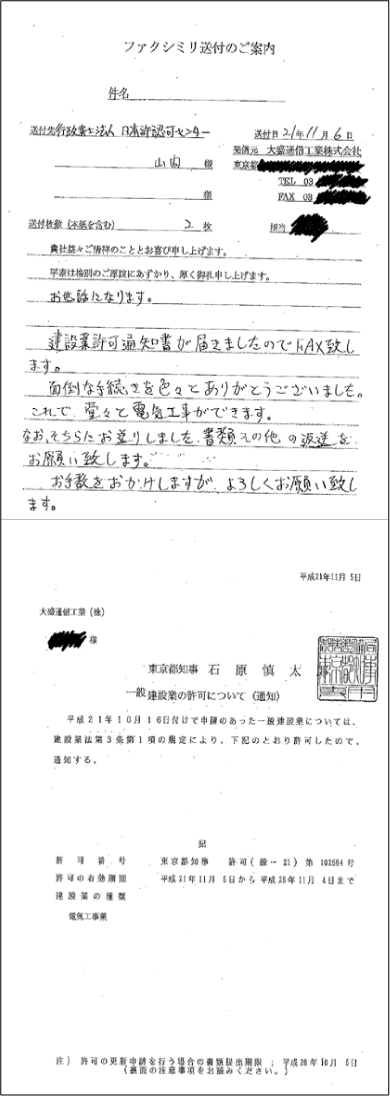 ファクシミリ送付のご案内
件名
送付先 行政書士法人 日本許認可センター
送付日 21年11月6日
発信元 大盛通信工業株式会社
山内 様
東京都
TEL 03
様
FAX 03
送付枚数(本紙を含む) 2 枚
担当
貴社益々ご清祥のこととお喜び申し上げます。
平素は格別のご厚誼にあずかり、厚く御礼申し上げます。
お世話になります。
建設業許可通知書が届きましたのでFAX致し
ます。
面倒な手続きを色々とありがとうございました。
これで、堂々と電気工事ができます。
なお、そちらにお送りしました、書類その他の返送を
お願い致します。
お手数をおかけしますが、よろしくお願い致し
ます。
平成21年11月 5日
大盛通信工業(株)
様
東京都知事 石原慎太
一般建設業の許可について(通知)
平成21年10月16日付けで申請のあった一般建設業については、
建設業法第3条第1項の規定により、下記のとおり許可したので、
通知する。
記
許可番号 東京都知事 許可(般-21)第 号
許可の有効期間 平成21年11月 5日から 平成26年11月 4日まで
建設業の種類
電気工事業
注) 許可の更新申請を行う場合の書類提出期限 ; 平成26年10月 5日
(裏面の注意事項をお読みください。)